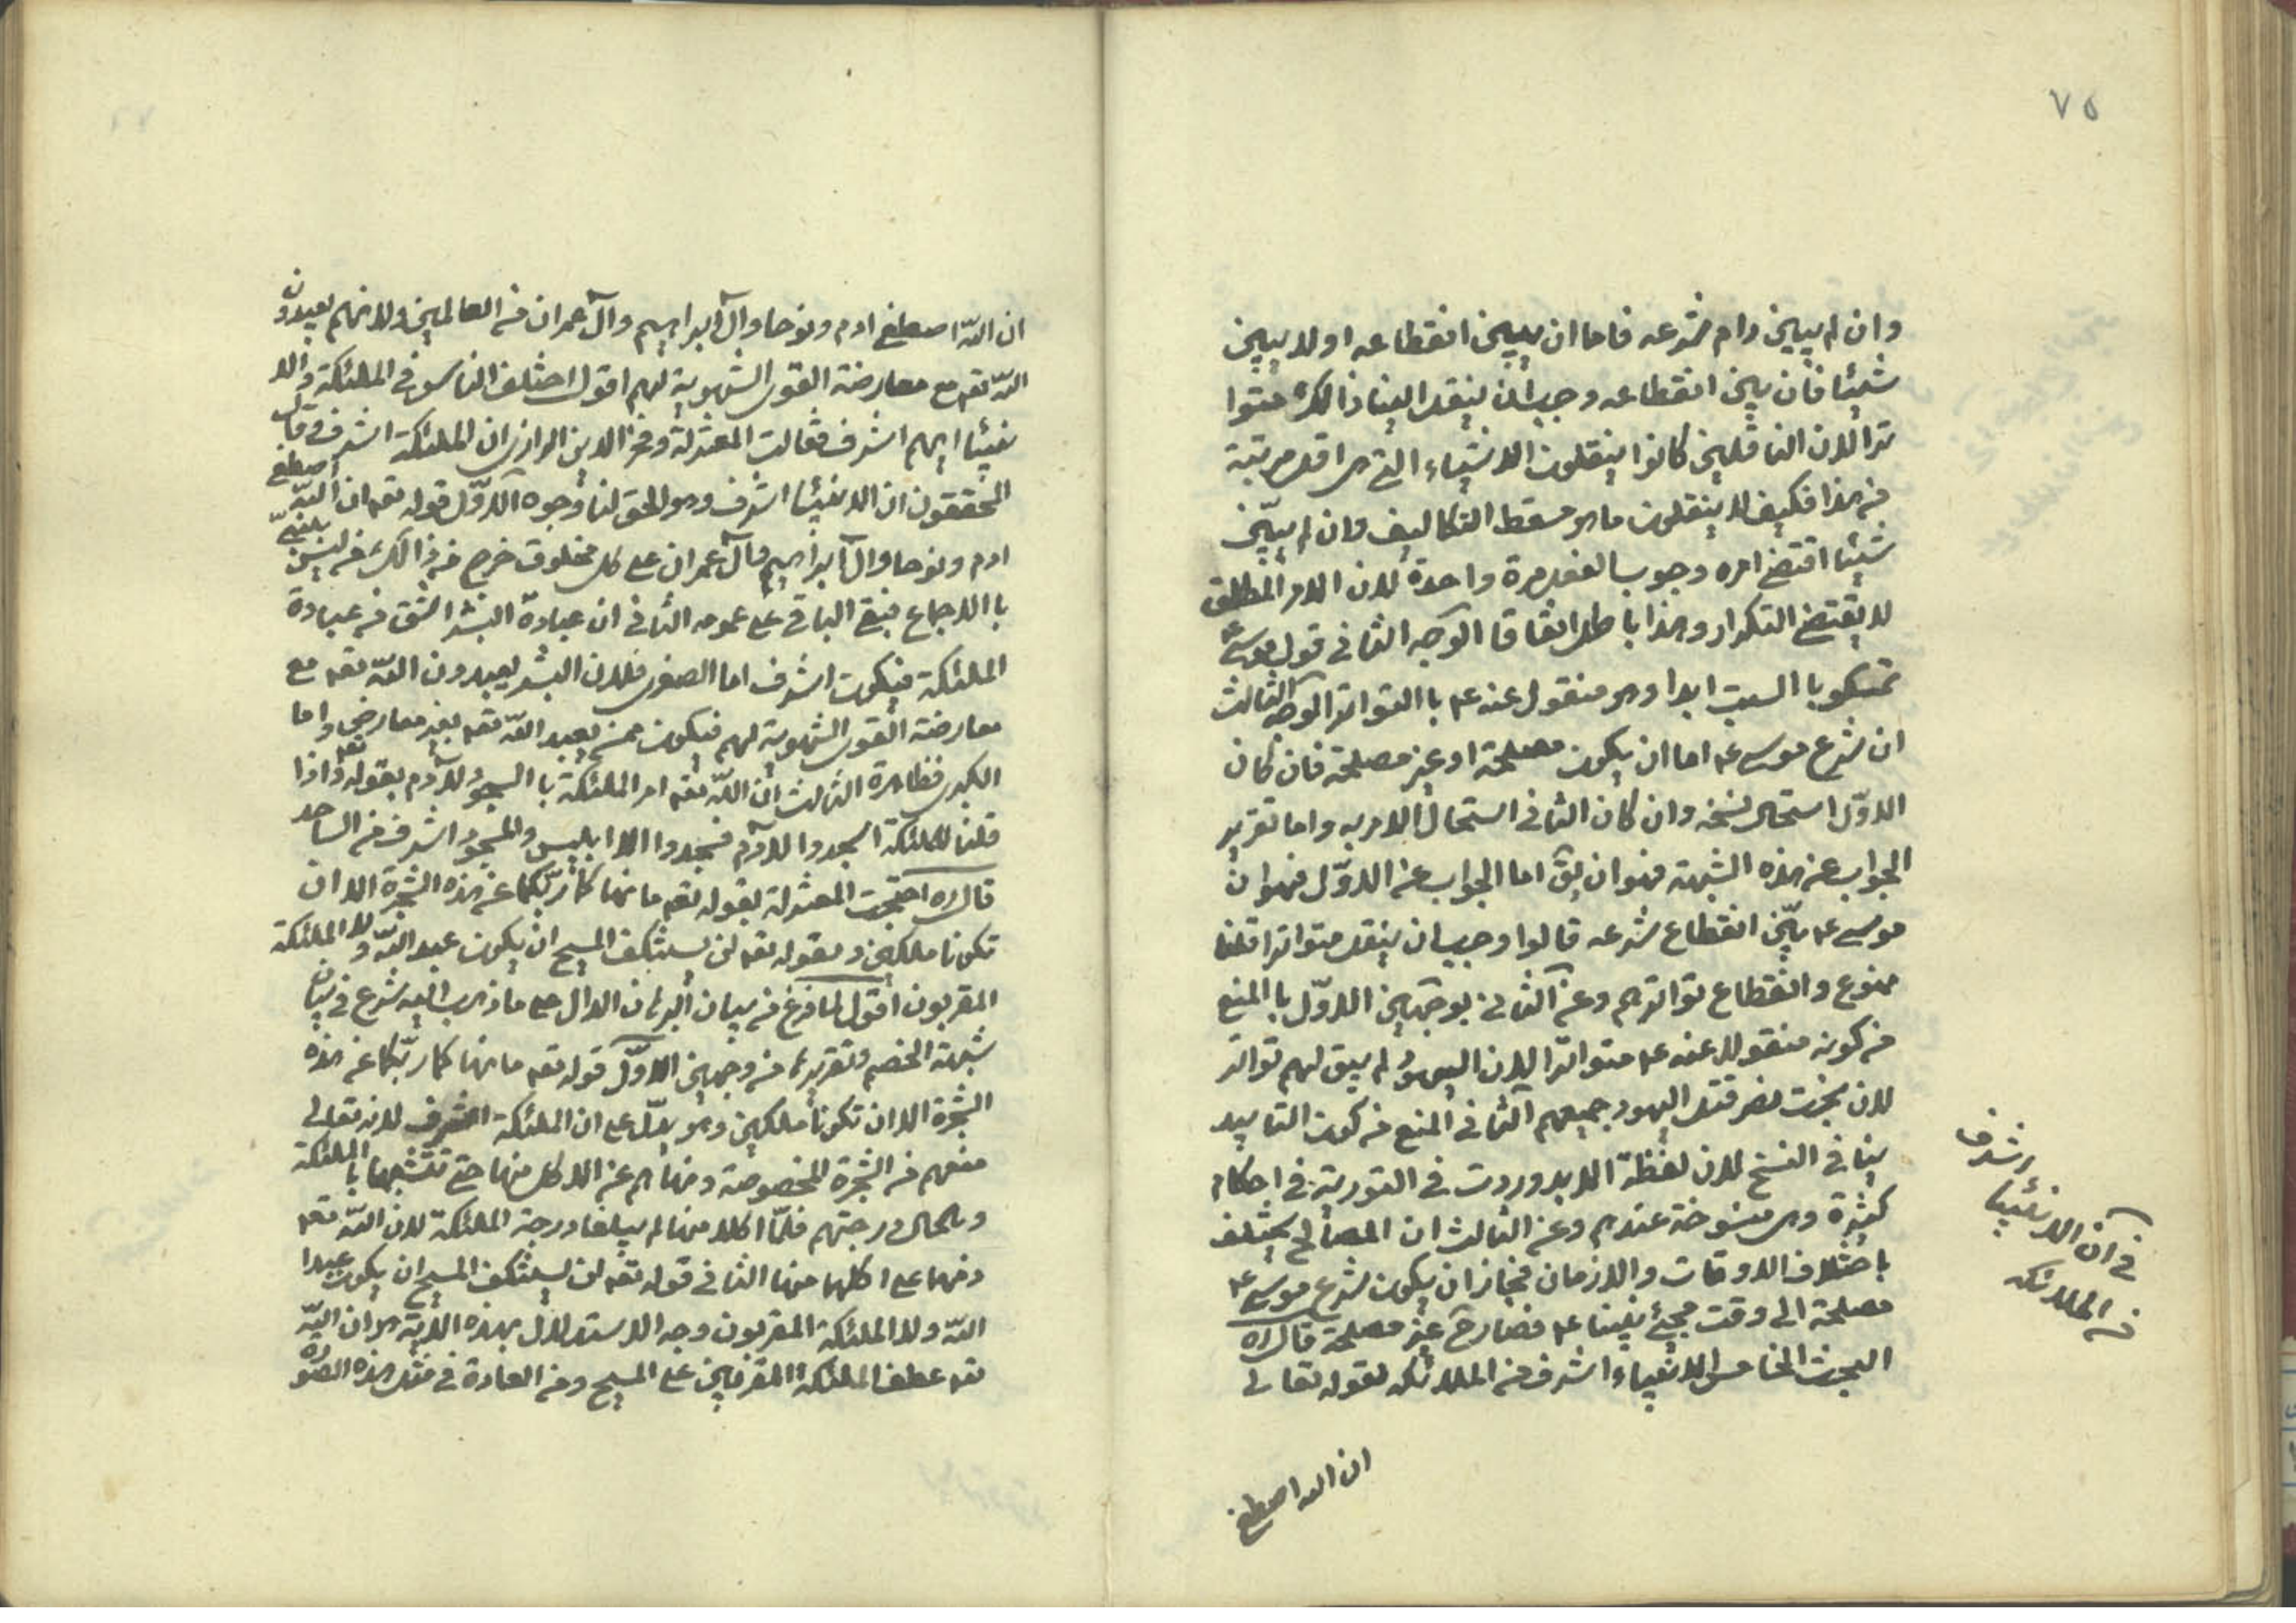 ٧٥
وان لم يبين دام شرعه فاما ان يبين انقطاعه او لا يبين
شيئا فان بين انقطاعه وجب ان ينقل الينا ذالك متوا
ترا لان الناقلين كانوا ينقلون الاشياء التي هي اقل مرتبة
من هذا فكيف لا ينقلون ما هو مسقط التكاليف وان لم يبين
شيئا اقتضى امره وجوب الفعل مرة واحدة لان الامر المطلق
لا يقتضي التكرار وهذا باطل اتفاقا الوجه الثاني قول موسى ع
تمسكو باالسبت ابدا وهو منقول عنه ع باالتواتر الوجه الثالث
ان شرع موسى ع اما ان يكون مصلحة او غير مصلحة فان كان
الاوّل استحال نسخه وان كان الثاني استحال الامر به واما تقرير
الجواب عن هذه الشبهة فهو ان يق اما الجواب عن الاوّل فهو ان
موسى ع بيّن انقطاع شرعه قالوا وجب ان ينقل متواترا قلنا
ممنوع وانقطاع تواترهم وعن الثاني بوجهين الاوّل باالمنع
من كونه منقولا عنه ع متواترا لان اليهود لم يبق لهم تواتر
لان بخت نصر قتل اليهود جميعهم الثاني المنع من كون التابيد
ينافي النسخ لان لفظة الابد وردت في التورية في احكام
كثيرة وهي منسوخة عندهم وعن الثالث ان المصالح يختلف
باختلاف الاوقات والازمان فجاز ان يكون شرع موسى ع
مصلحة الى وقت مجيئ نبينا ع فصار ح غير مصلحة قال ره
البحث الخامس الانبياء اشرف من الملائكه لقوله تعالى
ان الله اصطفى
في ان الانبيا اشرف
من الملائكه
ان اللّه اصطفى ادم ونوحا وال ابراهيم وال عمران من العالمين ولانهم يعبدون
اللّه تعه مع معارضة القوى الشهوية لهم اقول اختلف الناس في الملئكة والا
نبيئا ايهم اشرف فقالت المعتزلة وفخر الدين الرازي ان الملئكة اشرف وقال
المحققون ان الانبيئا اشرف وهو الحق لنا وجوه الاوّل قوله تعه ان اللّه اصطفى
ادم ونوحا وال ابراهيم وال عمران على كل مخلوق خرج من ذالك من ليس بنبيّ
باالاجماع فبقي الباقي على عمومه الثاني ان عبادة البشر اشق من عبادة
الملئكة فيكون اشرف اما الصغرى فلان البشر يعبدون اللّه تعه مع
معارضة القوى الشهوية لهم فيكون ممن يعبد اللّه تعه بغير معارض واما
الكبرى فظاهرة الثالث ان اللّه تعه امر الملئكة باالسجود لادم بقوله تعه واذا
قلنا للملئكة اسجدوا لادم فسجدوا الا ابليس والمسجود اشرف من الساجد
قال ره احتجت المعتزلة بقوله تعه ما نهاكما ربّكما عن هذه الشجرة الا ان
تكونا ملكين وبقوله تعه لن يستنكف المسيح ان يكون عبد اللّه ولا الملئكة
المقربون اقول لما فرغ من بيان البرهان الدال على ما ذهب اليه شرع في بيان
شبهة الخصم وتقريرها من وجهين الاوّل قوله تعه ما نهاكما ربّكما عن هذه
الشجرة الا ان تكونا ملكين وهو يدلّ على ان الملئكة اشرف لانه تعالى
منعهم من الشجرة المخصوصة ونهاهم عن الاكل منها حتى تتشبها باالملئكة
وبكمال درجتهم فلمّا اكلا منها لم يبلغا درجة الملئكة لان اللّه تعه
نهما على اكلهما منها الثاني قوله تعه لن يستنكف المسيح ان يكون عبدا
اللّه ولا الملئكة المقربون وجه الاستدلال بهذه الاية هو ان اللّه
تعه عطف الملئكة المقربين على المسيح ومن العادة في مثل هذه الصورة